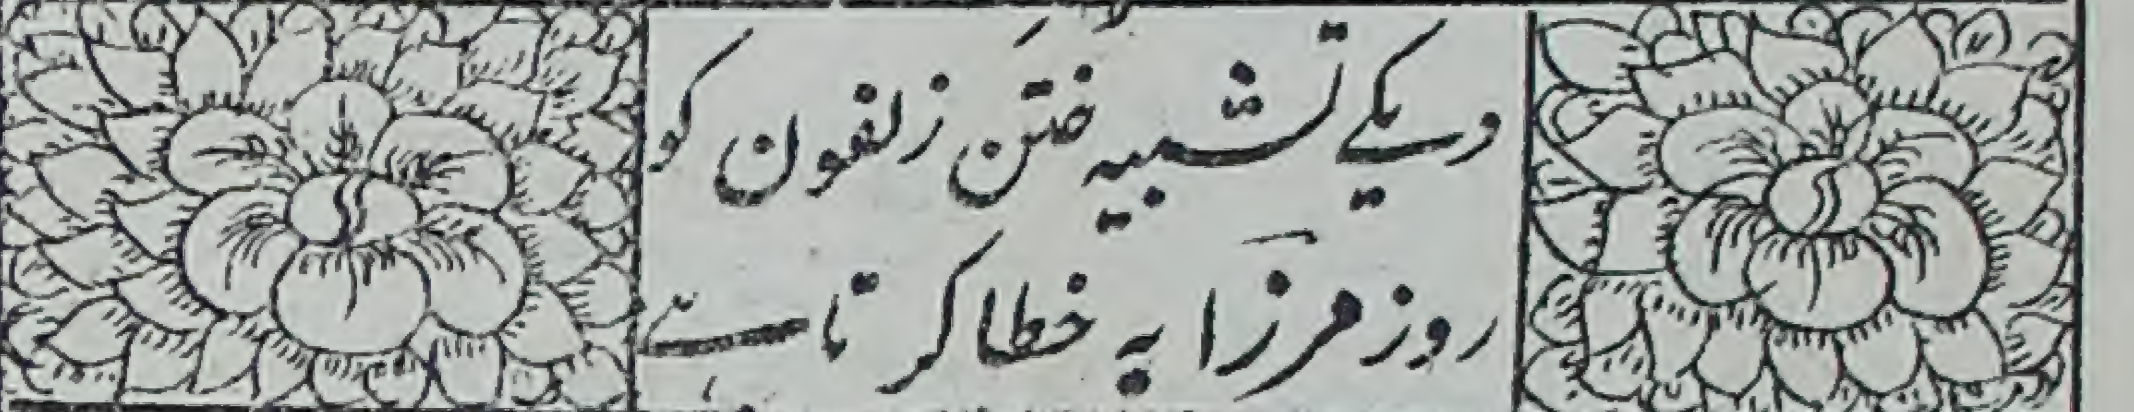 دیکے تشبیہ ختن زلفون کو
روز مرزا یہ خطا کرتا ہے